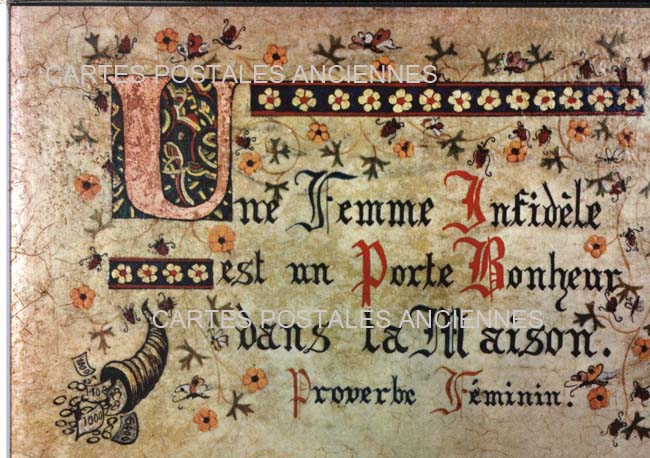 CARTES POSTALES ANCIENNES
Une Femme Infidèle
est un Porte Bonheur
CARTES POSTALES ANCIENNES
dans la Maison.
Proverbe Féminin.
1000
5000